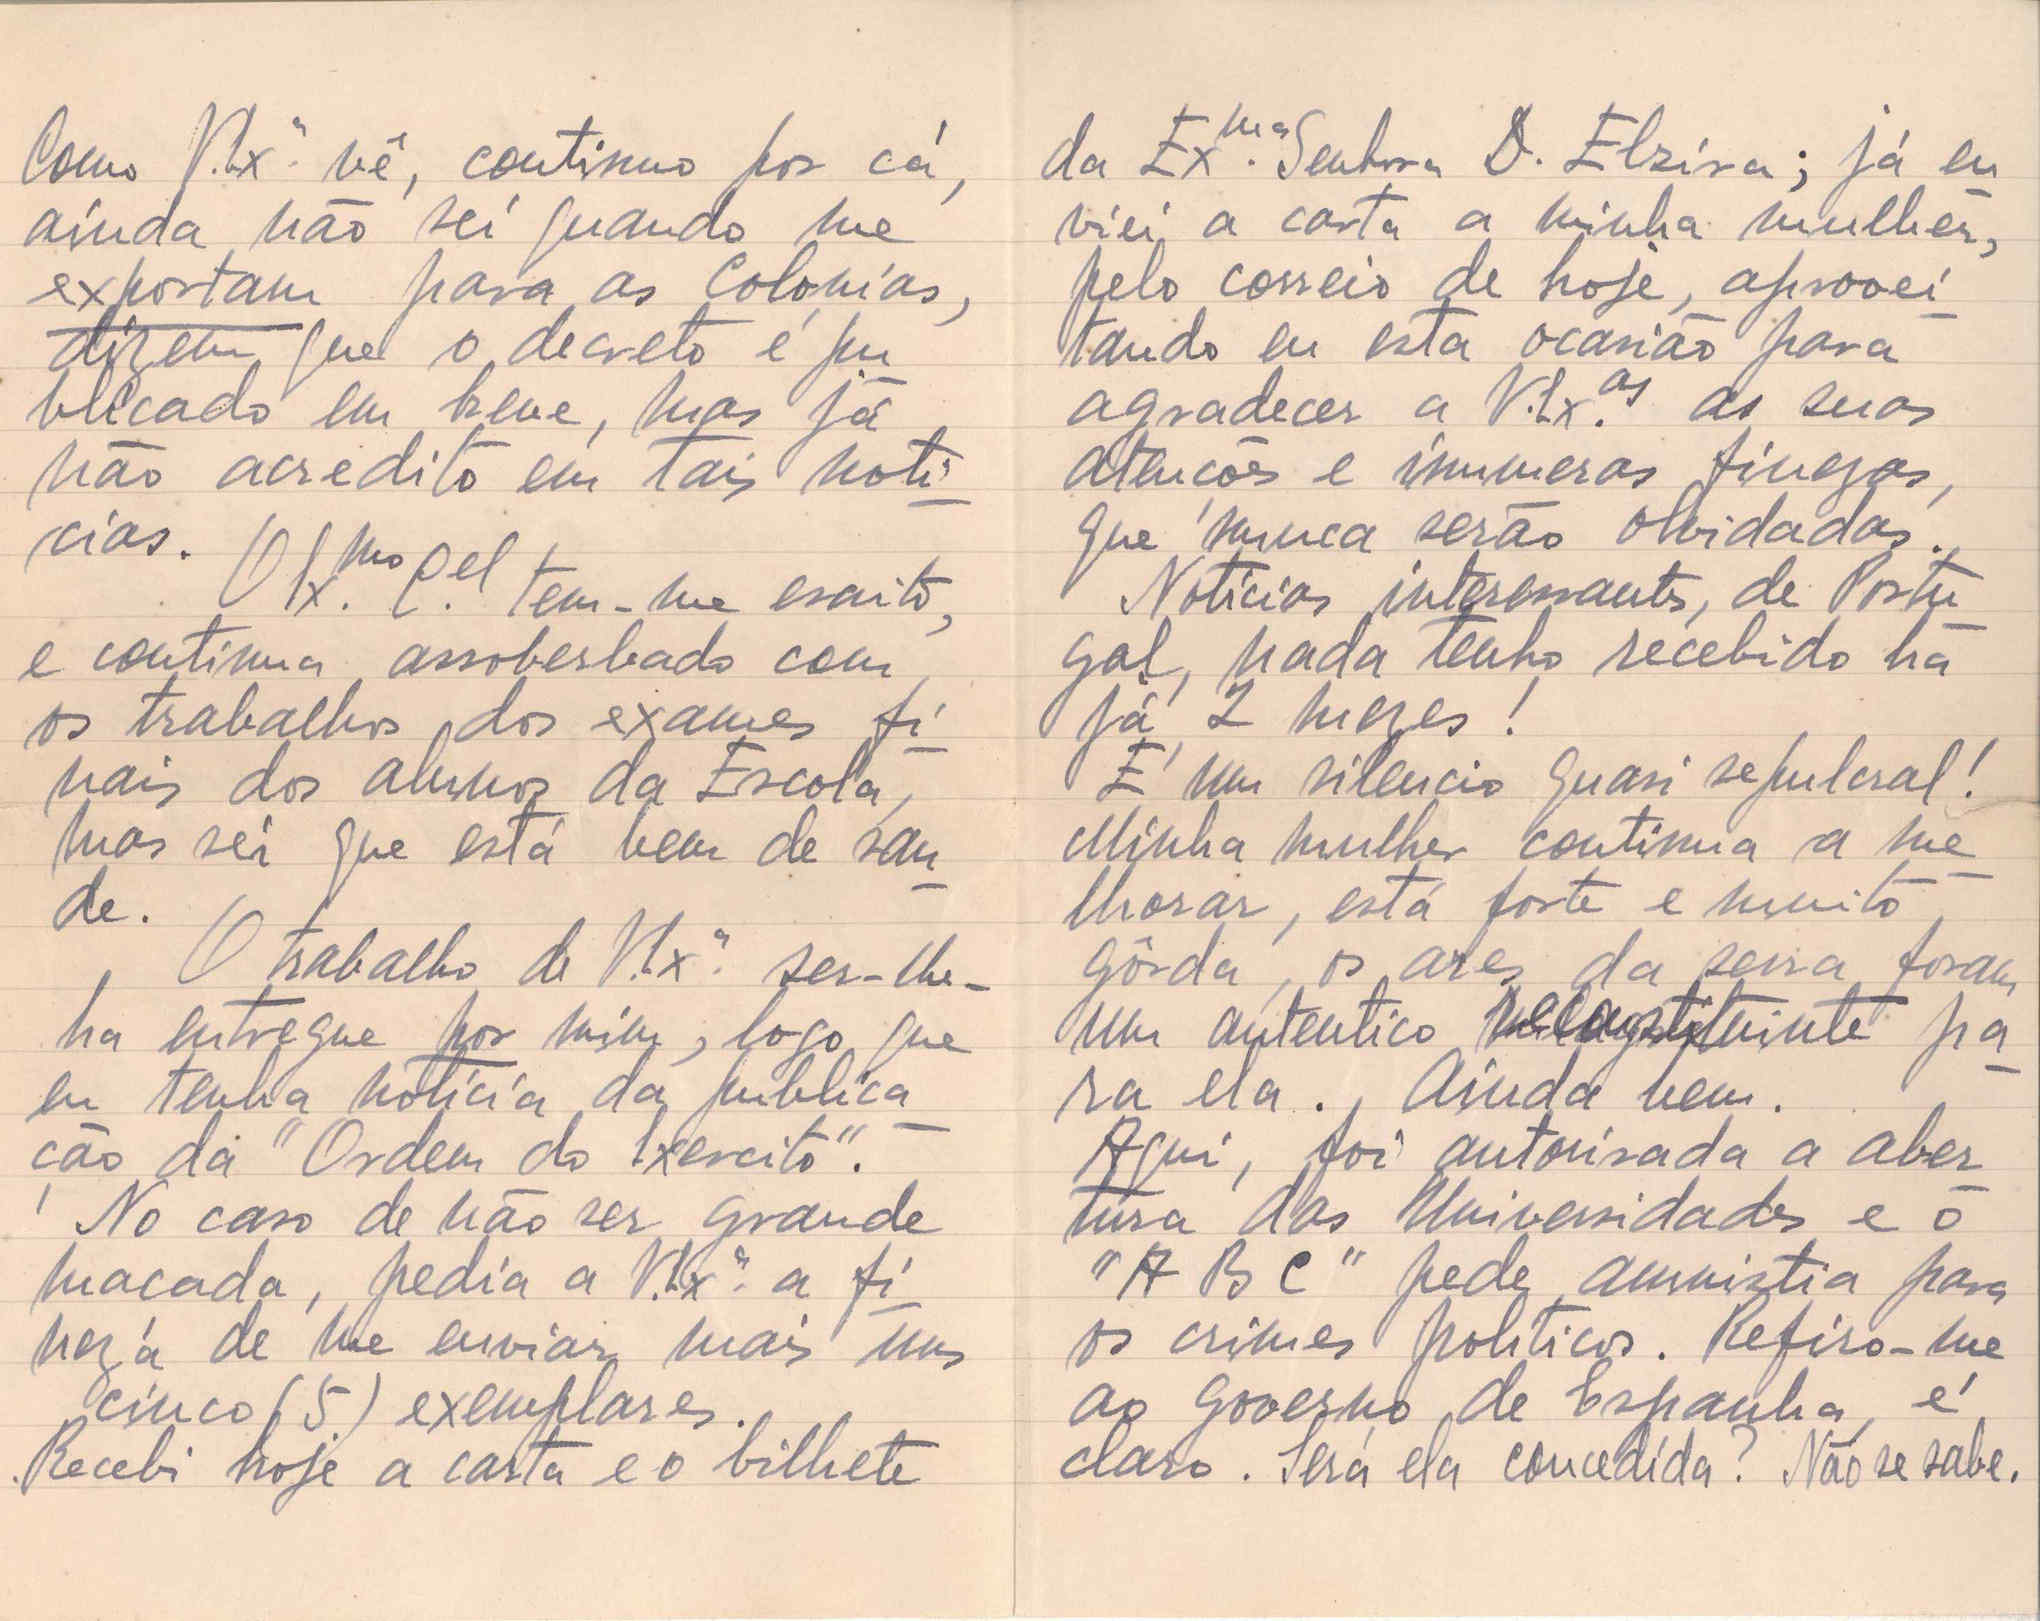 Como V. Ex.ª vê, continuo por cá,
ainda não sei quando me
exportam para as Colonias,
dizem que o decreto é pu
blicado em breve, mas já
não acredito em tais noti
cias.
O Ex.mo C.el tem-me escrito,
e continua assoberbado com
os trabalhos dos exames fi
nais dos alunos da Escola,
mas sei que está bem de sau
de.
O trabalho de V. Ex.ª ser-lhe-
ha entregue por mim, logo que
eu tenha noticia da publica
ção da "Ordem do Exercito".
No caso de não ser grande
maçada, pedia a V. Ex.ª a fi
neza de me enviar mais uns
cinco (5) exemplares.
Recebi hoje a carta e o bilhete
da Ex.ma Senhora D. Elzira; já en
viei a carta a minha mulher,
pelo correio de hoje, aprovei
tando eu esta ocasião para
agradecer a V. Ex.as as suas
atenções e inumeras finezas,
que nunca serão olvidadas.
Noticias interessantes, de Portu
gal, nada tenho recebido há
já 2 mezes!
É um silencio quasi sepulcral!
Minha mulher continua a me
lhorar, está forte e muito
gôrda, os ares da serra foram
um autentico reconstituinte pa
ra ela. Ainda bem.
Aqui, foi autorisada a aber
tura das Universidades e o
"A B C" pede amnistia para
os crimes politicos. Refiro-me
ao governo de Espanha, é
claro. Será ela concedida? Não se sabe.